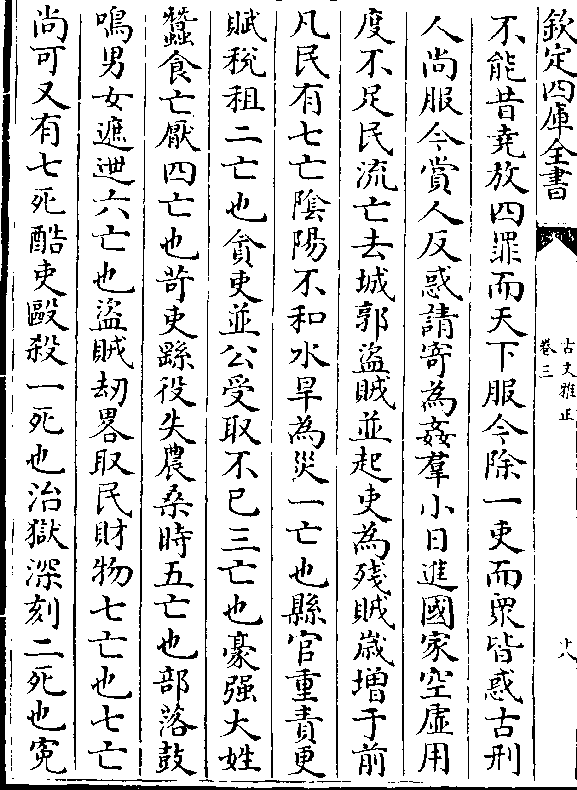 欽定四庫全書
古文雅正
卷三
十八
不能昔堯放四罪而天下服今除一吏而衆皆惑古刑
人尚服今賞人反惑請寄為姦羣小日進國家空虛用
度不足民流亡去城郭盜賊並起吏為殘賊歲增于前
凡民有七亡隂陽不和水旱為災一亡也縣官重責更
賦稅租二亡也貪吏並公受取不已三亡也豪强大姓
蠶食亡厭四亡也苛吏繇役失農桑時五亡也部落鼓
鳴男女遮迣六亡也盜賊刼畧取民財物七亡也七亡
尚可又有七死酷吏毆殺一死也治獄深刻二死也寃